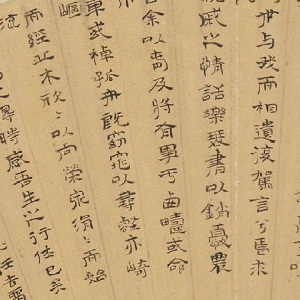 世與我而相遺復駕言兮焉求
戚之情話樂琴書以銷憂農
告余以春及將有事乎西疇或命
車或棹孤舟既窈窕以尋壑亦崎
嶇
而經丘木欣〻以向榮泉涓〻而始
流
之得時感吾生之行休已矣